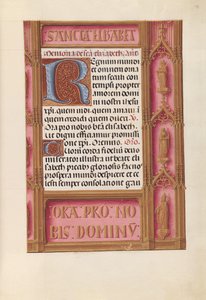 SANCTA ELISABET
De sancta elisabeth. Ant.
Regnum mundi
et omnem orna
tum seculi con
tempsi propter
amorem domi
ni nostri iesu
xpi. quem vidi quem amaui i
quem credidi quem dilexi. V.
Ora pro nobis bta elisabeth.
Ut digni efficiamur promissi
onibus xpi. Oremus. Oro.
Tuorum corda fidelium deus
miserator illustra: ut beate eli
sabeth precibus gloriosis fac nos
prospera mundi despicere: et ce
lesti semper consolatione gau
ORA PRO NO
BIS DOMINV